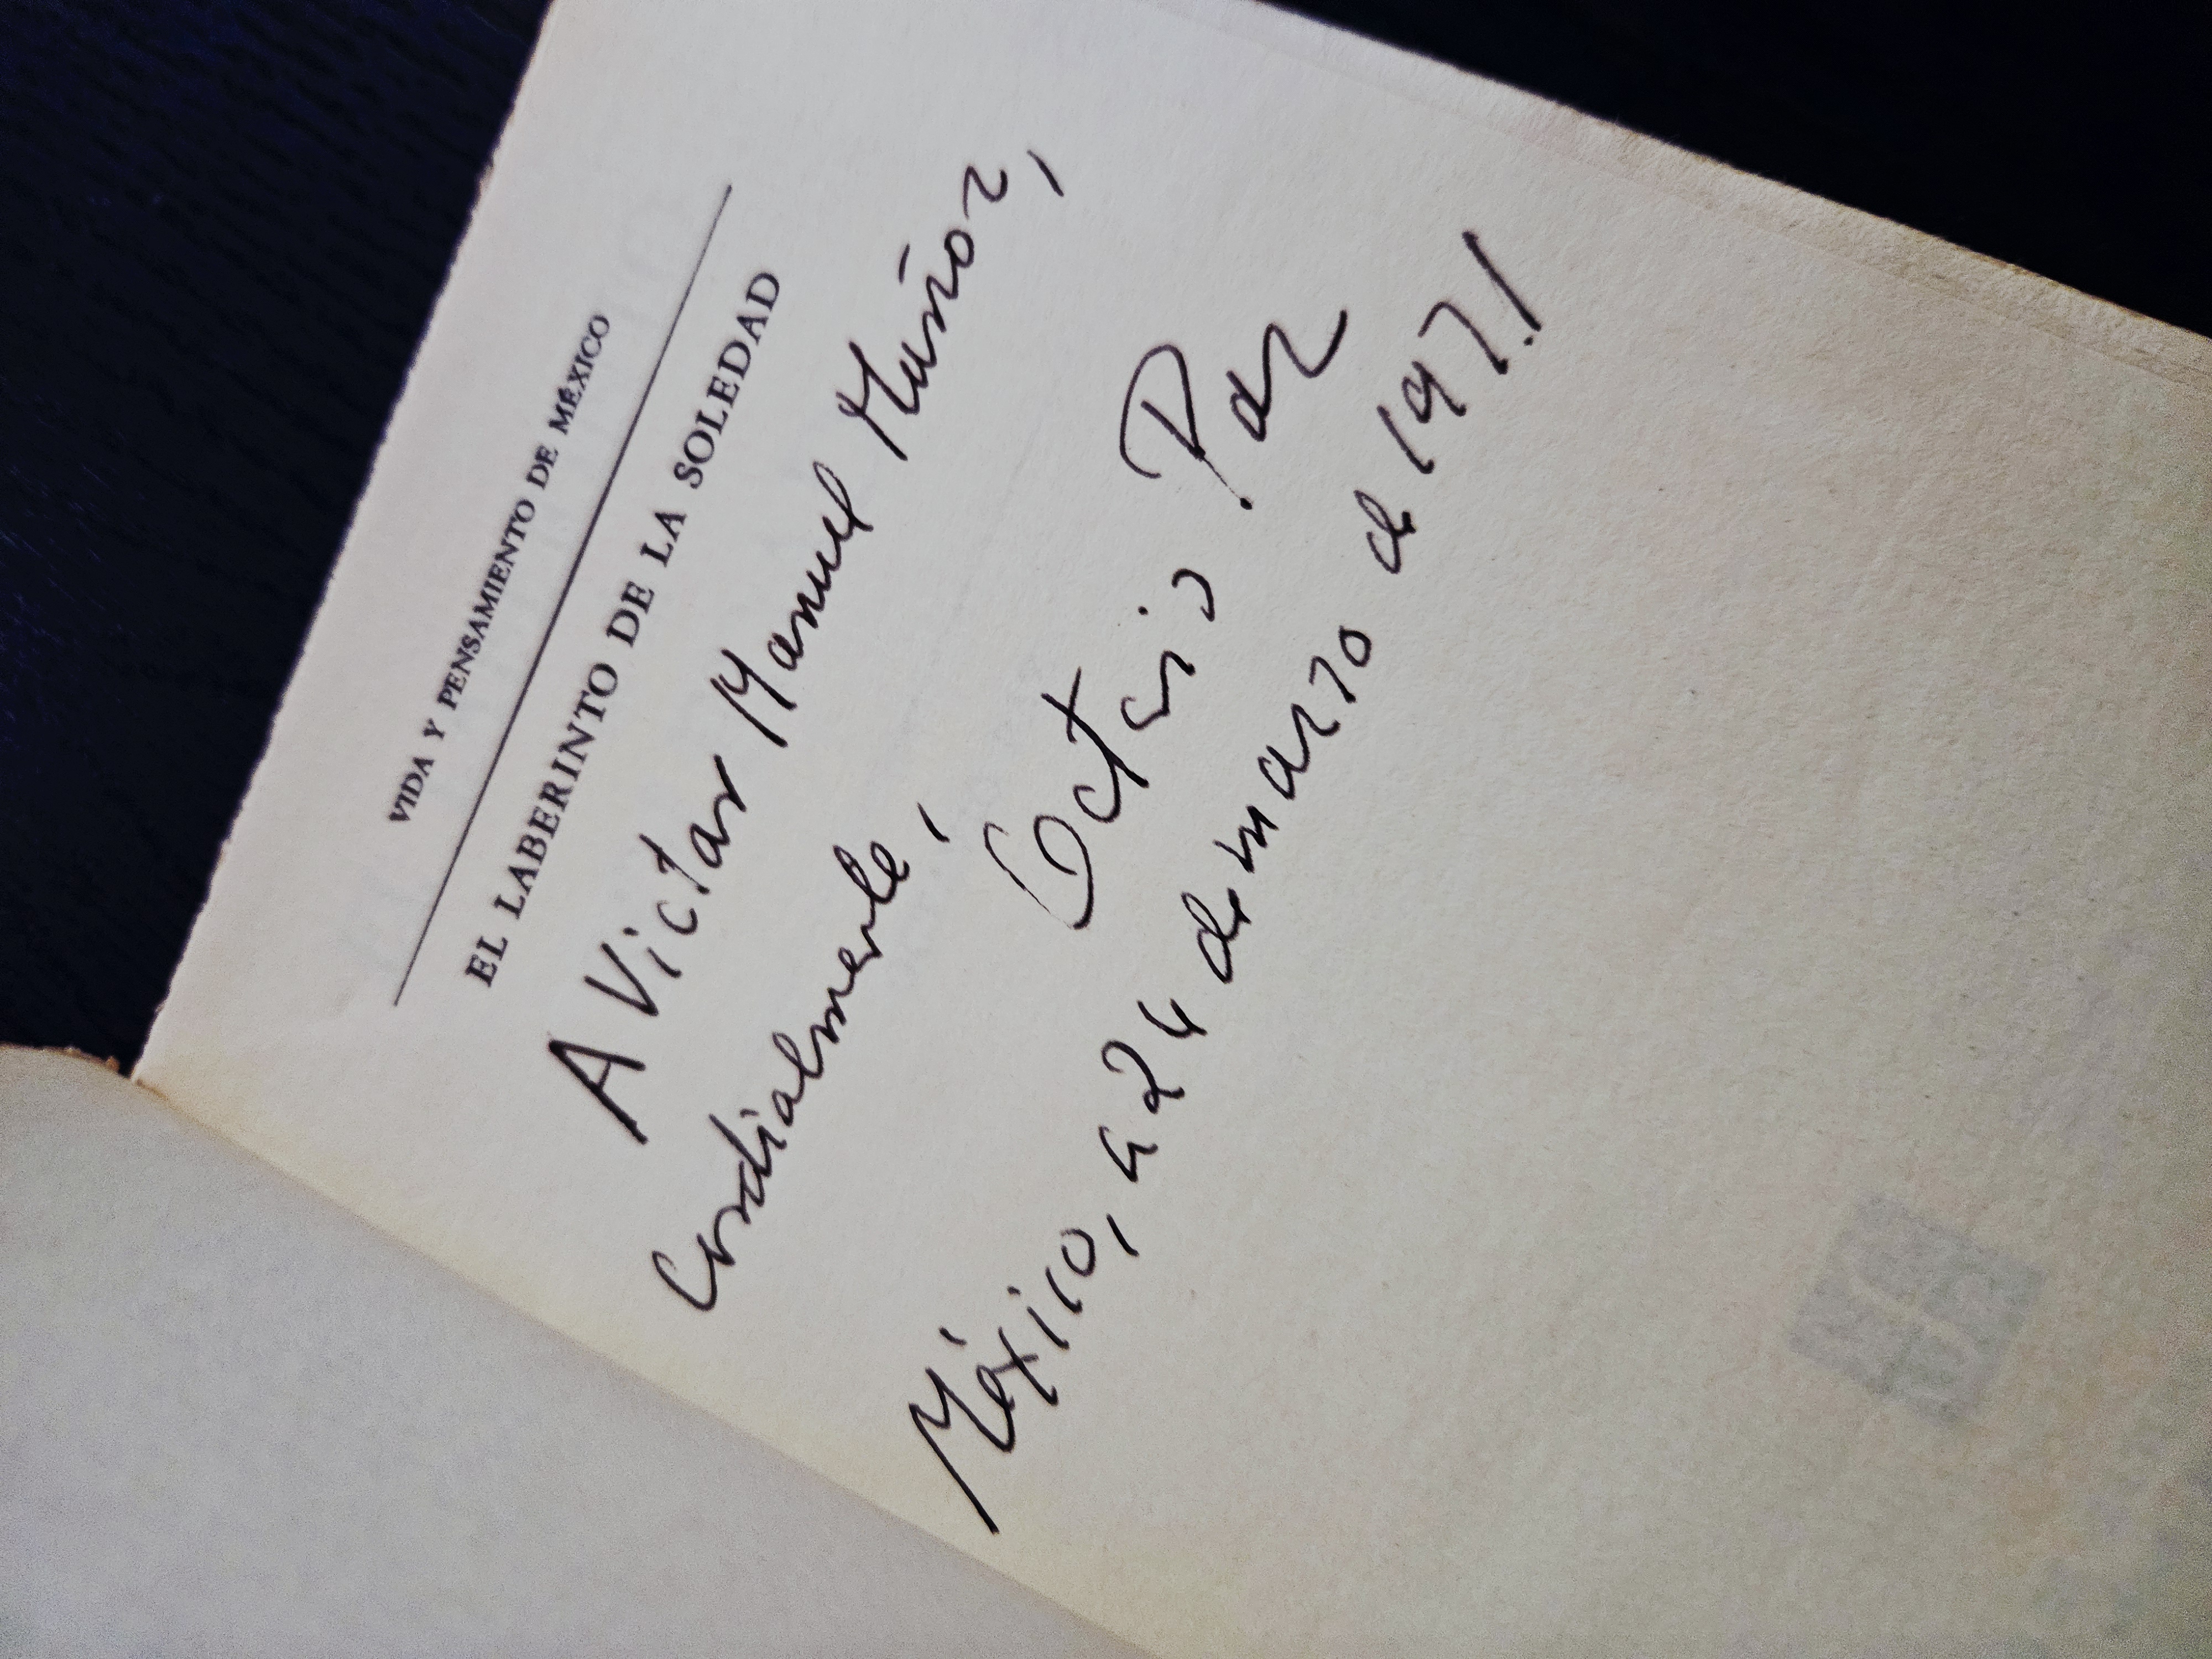 VIDA Y PENSAMIENTO DE MÉXICO
EL LABERINTO DE LA SOLEDAD
A Victor Manuel Muñoz,
Cordialmente,
Octavio Paz
México, a 24 de marzo de 1971